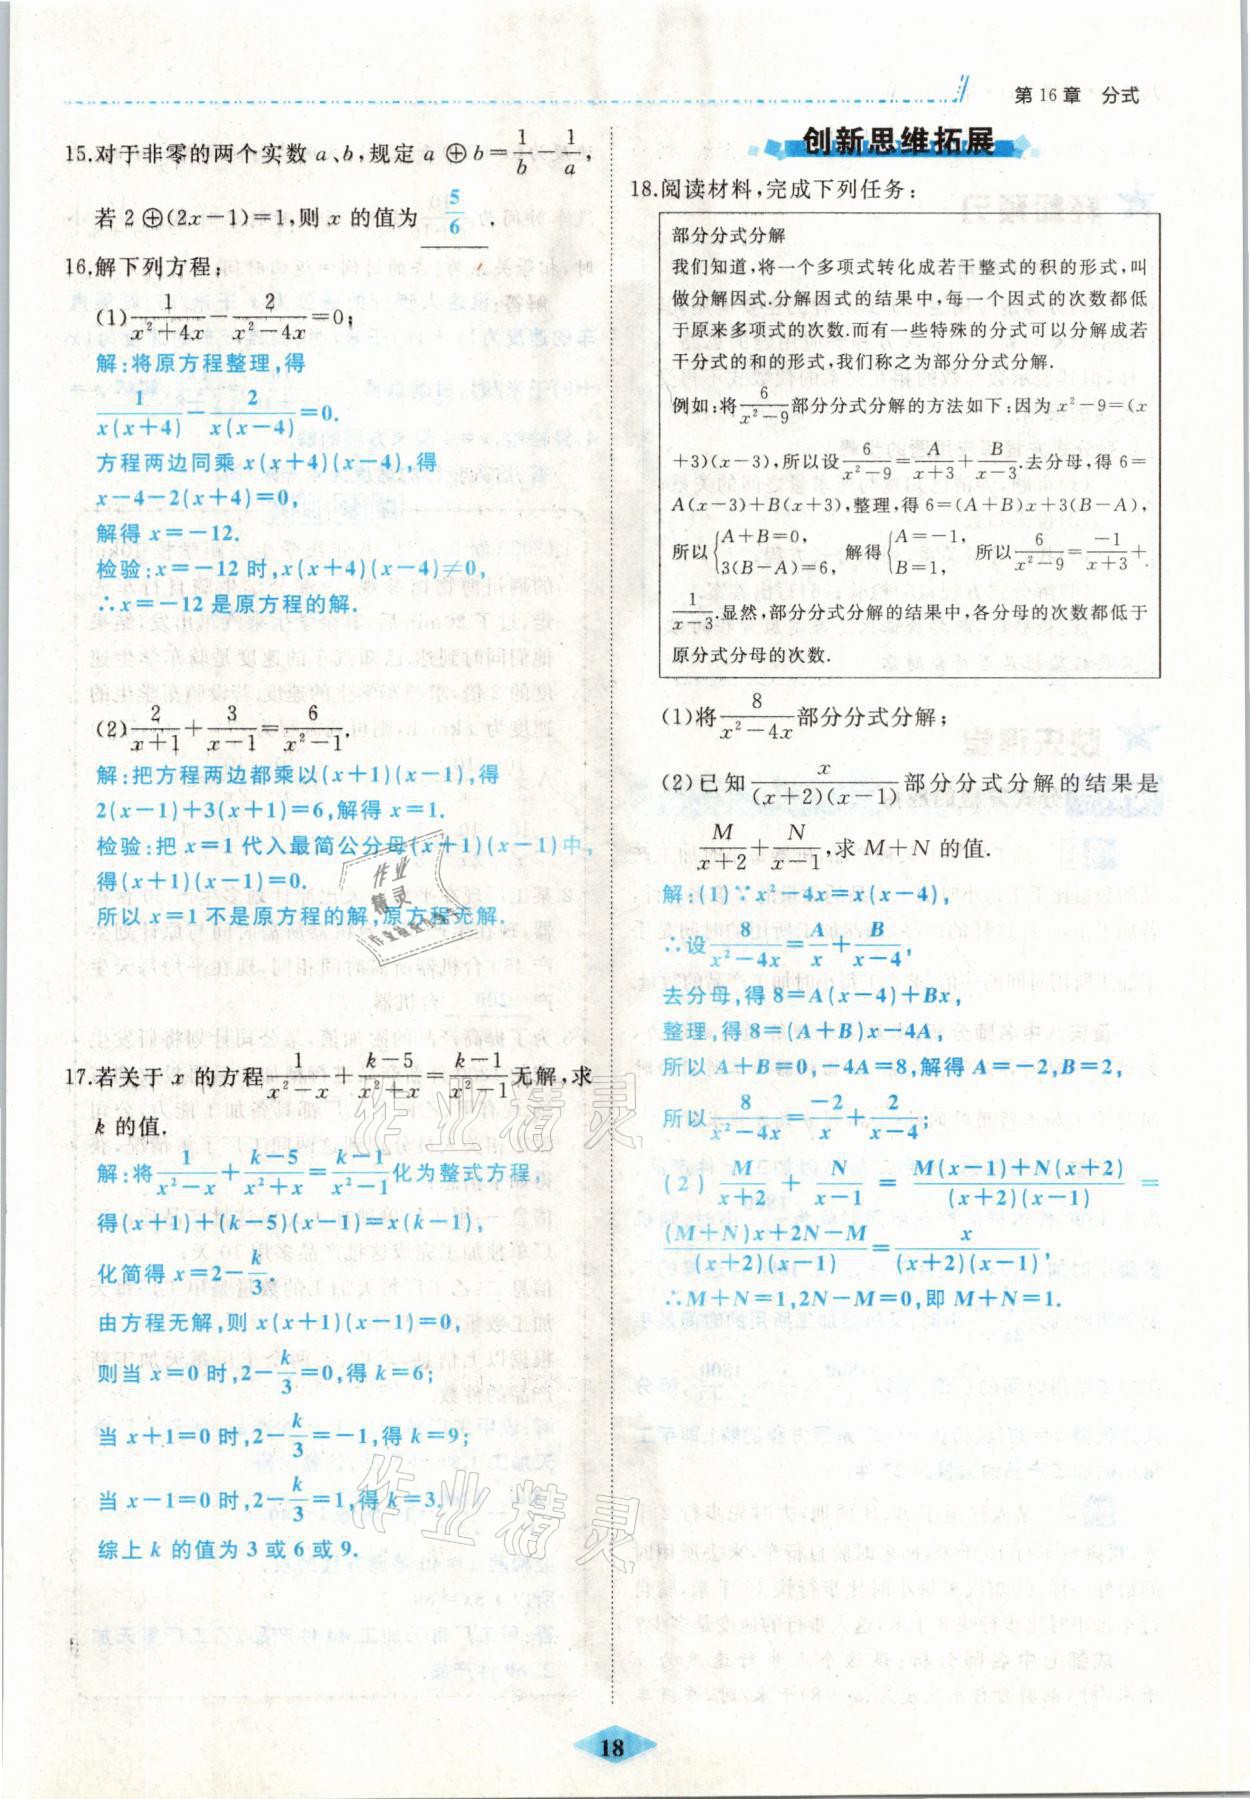 第16章 分式
15.对于非零的两个实数a、b,规定a⊕b=1/b-1/a,
若2⊕(2x-1)=1,则x的值为 5/6 .
16.解下列方程:
(1)1/(x²+4x)-2/(x²-4x)=0;
解:将原方程整理,得
1/(x(x+4))-2/(x(x-4))=0.
方程两边同乘x(x+4)(x-4),得
x-4-2(x+4)=0,
解得x=-12.
检验:x=-12时,x(x+4)(x-4)≠0,
∴x=-12是原方程的解.
(2)2/(x+1)+3/(x-1)=6/(x²-1).
解:把方程两边都乘以(x+1)(x-1),得
2(x-1)+3(x+1)=6,解得x=1.
检验:把x=1代入最简公分母(x+1)(x-1)中,
得(x+1)(x-1)=0.
所以x=1不是原方程的解,原方程无解.
17.若关于x的方程1/(x²-x)+(k-5)/(x²+x)=(k-1)/(x²-1)无解,求
k的值.
解:将1/(x²-x)+(k-5)/(x²+x)=(k-1)/(x²-1)化为整式方程,
得(x+1)+(k-5)(x-1)=x(k-1),
化简得x=2-k/3.
由方程无解,则x(x+1)(x-1)=0,
则当x=0时,2-k/3=0,得k=6;
当x+1=0时,2-k/3=-1,得k=9;
当x-1=0时,2-k/3=1,得k=3.
综上k的值为3或6或9.
创新思维拓展
18.阅读材料,完成下列任务:
部分分式分解
我们知道,将一个多项式转化成若干整式的积的形式,叫
做分解因式.分解因式的结果中,每一个因式的次数都低
于原来多项式的次数.而有一些特殊的分式可以分解成若
干分式的和的形式,我们称之为部分分式分解.
例如:将6/(x²-9)部分分式分解的方法如下:因为x²-9=(x
+3)(x-3),所以设6/(x²-9)=A/(x+3)+B/(x-3).去分母,得6=
A(x-3)+B(x+3),整理,得6=(A+B)x+3(B-A),
所以{A+B=0, 3(B-A)=6, 解得{A=-1, B=1. 所以6/(x²-9)=-1/(x+3)+
1/(x-3).显然,部分分式分解的结果中,各分母的次数都低于
原分式分母的次数.
(1)将8/(x²-4x)部分分式分解;
(2)已知x/((x+2)(x-1))部分分式分解的结果是
M/(x+2)+N/(x-1),求M+N的值.
解:(1)∵x²-4x=x(x-4),
∴设8/(x²-4x)=A/x+B/(x-4),
去分母,得8=A(x-4)+Bx,
整理,得8=(A+B)x-4A,
所以A+B=0,-4A=8,解得A=-2,B=2,
所以8/(x²-4x)=-2/x+2/(x-4);
(2)M/(x+2)+N/(x-1)=(M(x-1)+N(x+2))/((x+2)(x-1))=
((M+N)x+2N-M)/((x+2)(x-1))=x/((x+2)(x-1)),
∴M+N=1,2N-M=0,即M+N=1.
作业精灵
作业精灵
作业精灵
18